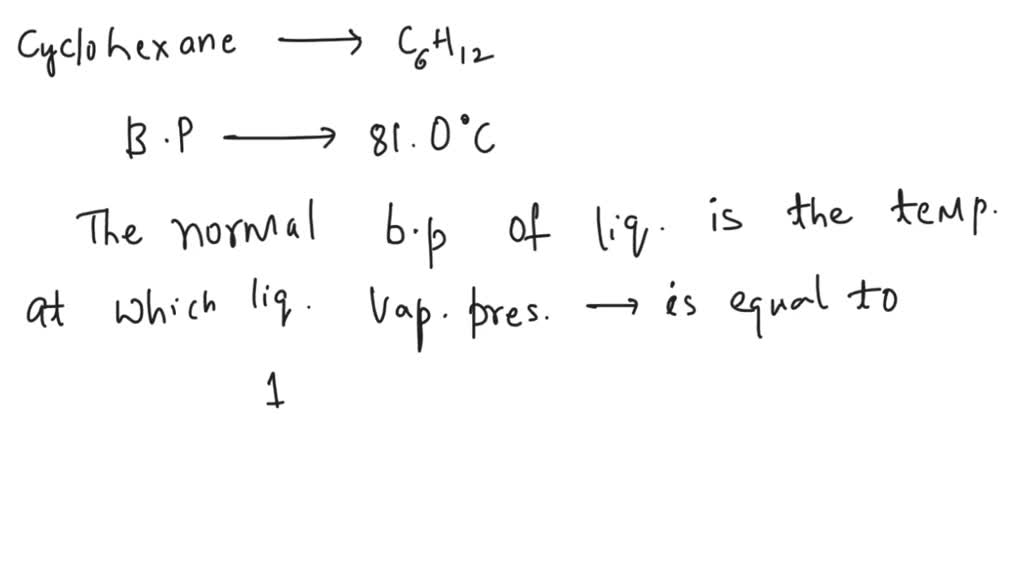 Cyclohexane ⟶ C₆H₁₂
B.P ⟶ 81.0°C
The normal b.p of liq. is the temp.
at which liq. Vap. pres. → is equal to
1